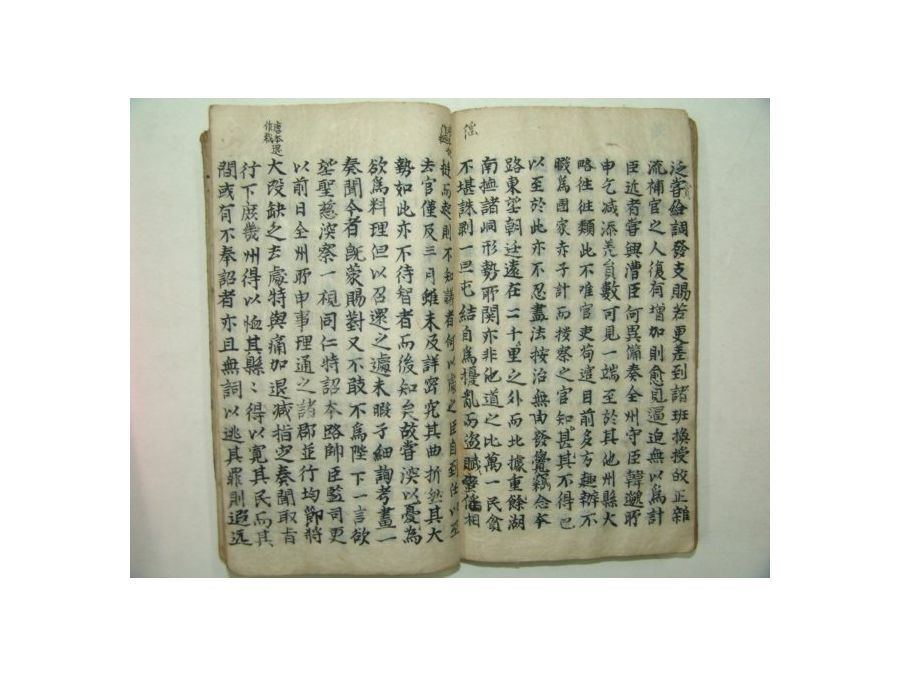 徭
泛寄調發支賜若更差到諸班換授故正雜
流補官之人復有增加則愈見逼迫無以為計
臣近者嘗與漕臣何異備奏全州守臣韓邈所
申乞减添差員數可見一端至於其他州縣大
略往往類此不唯官吏苟逭目前多方趣辦不
暇為國家赤子計而按察之官知甚其不得已
以至於此亦不忍盡法按治無由發覺竊念本
路東望朝廷遠在二千里之外而北據重餘湖
南撫諸峒形勢所関亦非他道之比萬一民貧
不堪誅剥一旦屯結自為擾亂而盜賊蠻徭相
挻而起則不知議者何以處之臣自到任以至
去官僅及三月雖未及詳密究其曲折然其大
勢如此亦不待智者而後知矣故嘗深以憂為
欲為料理但以召還之遽未暇子細詢考畫一
奏聞今者既蒙賜對又不敢不為陛下一言欲
望聖慈深察一視同仁特詔本路帥臣監司更
以前日全州所申事理通之諸郡並行均節將
唐本退
作裁
大段缺乏去處特與痛加退减指定奏聞取旨
行下庶幾州得以恤其縣〻得以寬其民而其
間或有不奉詔者亦且無詞以逃其罪則遐远